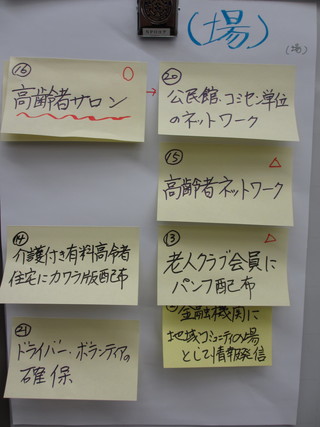 (場)
(場)
⑯
高齢者サロン
⑳
公民館、コミセン単位
のネットワーク
⑮
高齢者ネットワーク
⑭
介護付き有料高齢者
住宅にカワラ版配布
⑬
老人クラブ会員に
パンフ配布
㉑
ドライバー・ボランティアの
確保
金融機関に
地域コミュニティの場
として情報発信